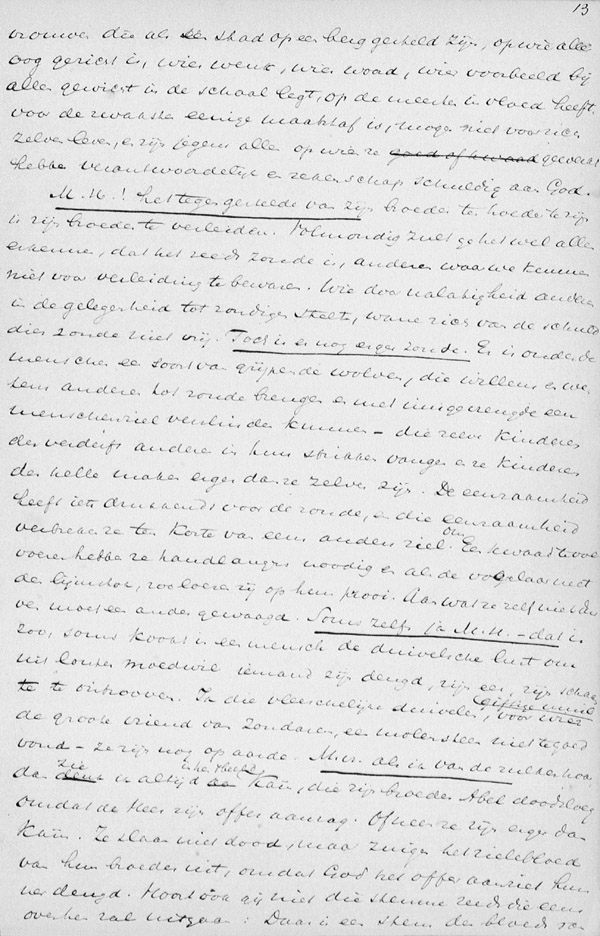 13
vrouwen die als een stad op een berg gesteld zijn, op wie alle
oog gericht is, wier wenk, wier woord, wier voorbeeld bij
allen gewicht in de schaal legt, op de meesten invloed heeft,
voor de zwakste eenige maakstaf is, mogen niet voor zich
zelve leven, en zijn jegens alle op wie ze goed of kwaad
hebben verantwoordelijk en rekenschap schuldig aan God.
M.H.! het tegengestelde van zijn broeder te hoeden is zijn
is zijn broeder te verleiden. Volmondig zult ge het wel allen
erkennen, dat het reeds zonde is, anderen waar we kunnen
niet voor verleiding te bewaren. Wie door nalatigheid anderen
in de gelegenheid tot zondigen stelt, wane zich van de schuld
dier zonde niet vrij. Toch is er nog erger zonde. Er is onder de
menschen een soort van grijpende wolven, die willens en we
tens anderen tot zonde brengen en met
menschenziel verslinden kunnen – die zeven kinderen
des verderfs anderen in hun strikken vangen en ze kinderen
der helle maken erger dan ze zelve zijn. De eenzaamheid
heeft iets drukkends voor de zonde, en die eenzaamheid
verbreken ze ten koste van eens anders ziel. Om
voeren hebben ze handlangers noodig en als de vogelaar met
de lijmstok, zoo loeren zij op hun prooi. Aan wat ze zelf niet
moet een ander gewaagd. Soms zelfs, ja M.H. – dat is
zoo, soms komt in een mensch de duivelsche lust om
uit louter moedwil iemand zijn deugd, zijn eer, zijn schaam
te te ontrooven. In die vleeschelijke duivelen, voor wier
de groote vriend van zondaren, een molensteen niet te goed
vond – ze zijn nog op aarde. M.H. als ik van de zulken hoor
dan zie ik altijd Kaïn, die zijn broeder Abel doodsloeg
omdat de Heer zijn offer aanzag. Of neen ze zijn erger dan
Kaïn. Ze slaan niet dood, maar zuigen het zielebloed
van hun broeder uit, omdat God het offer aanziet hun
ner deugd. Hoort gij niet die stemme reeds die eens
over hen zal uitgaan: Daar is een stem des bloeds van